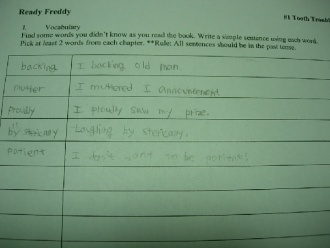 Ready Freddy
#1 Tooth Trouble
1. Vocabulary
Find some words you didn't know as you read the book. Write a simple sentence using each word.
Pick at least 2 words from each chapter. **Rule: All sentences should be in the past tense.
backing I backing old man.
mutter I muttered I announcement
proudly I proudly saw my prize.
by
Laughing by
patient I don't want to be patient!